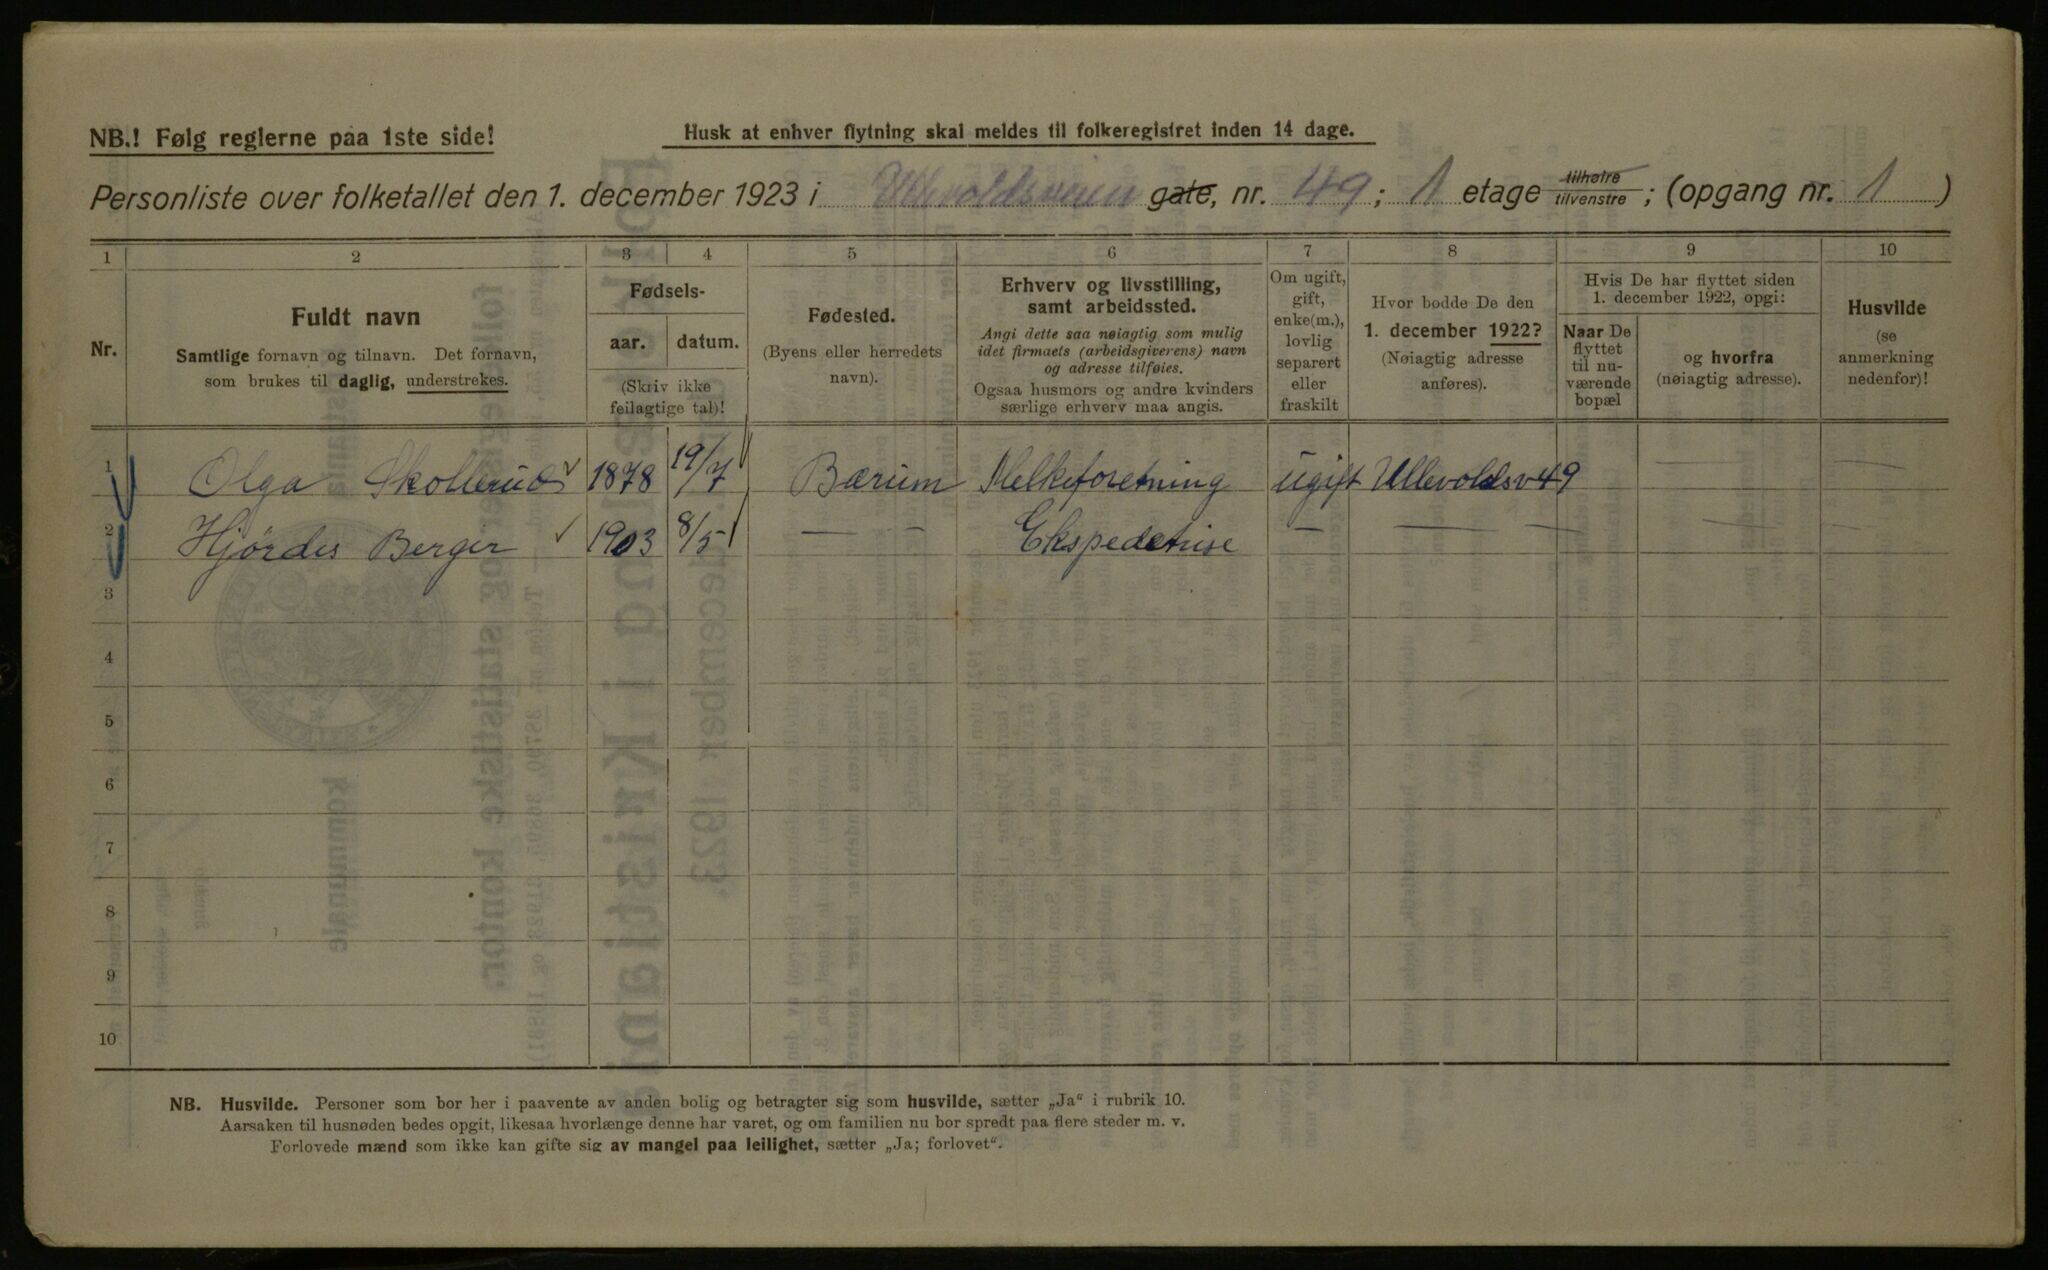 NB.! Følg reglerne paa 1ste side!
Husk at enhver flytning skal meldes til folkeregistret inden 14 dage.
Personliste over folketallet den 1. december 1923 i Ullevoldsveien gate, nr. 49; 1 etage tilhøire tilvenstre; (opgang nr. 1)
1 2 3 4 5 6 7 8 9 10
Nr.
Fuldt navn
Samtlige fornavn og tilnavn. Det fornavn,
som brukes til daglig, understrekes.
Fødsels-
aar. datum.
(Skriv ikke
feilagtige tal)!
Fødested.
(Byens eller herredets
navn).
Erhverv og livsstilling,
samt arbeidssted.
Angi dette saa nøiagtig som mulig
idet firmaets (arbeidsgiverens) navn
og adresse tilføies.
Ogsaa husmors og andre kvinders
særlige erhverv maa angis.
Om ugift,
gift,
enke(m.),
lovlig
separert
eller
fraskilt
Hvor bodde De den
1. december 1922?
(Nøiagtig adresse
anføres).
Hvis De har flyttet siden
1. december 1922, opgi:
Naar De
flyttet
til nu-
værende
bopæl
og hvorfra
(nøiagtig adresse).
Husvilde
(se
anmerkning
nedenfor)!
1 Olga Skollerud 1878 19/7 Bærum Melkeforetning ugift Ullevoldsv 49 — —
2 Hjørdis Berger 1903 8/5 — - Ekspedetrise — — — — — -
3
4
5
6
7
8
9
10
NB. Husvilde. Personer som bor her i paavente av anden bolig og betragter sig som husvilde, sætter „Ja“ i rubrik 10.
Aarsaken til husnøden bedes opgit, likesaa hvorlænge denne har varet, og om familien nu bor spredt paa flere steder m. v.
Forlovede mænd som ikke kan gifte sig av mangel paa leilighet, sætter „Ja; forlovet“.